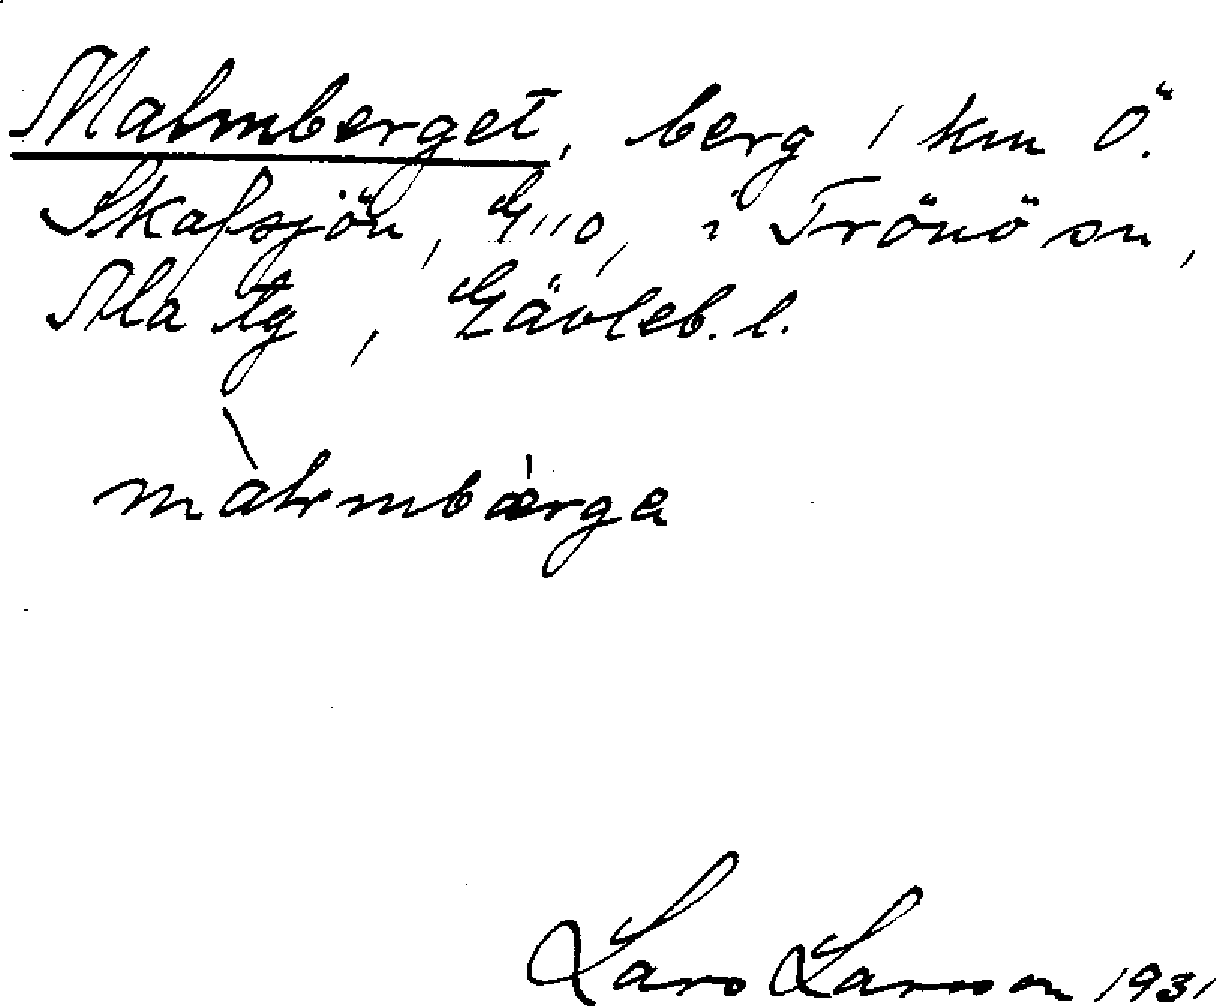 Malmberget, berg 1 km Ö.
Skafsjön, G110, i Trönö sn,
Ala tg, Gävleb. l.
màlmbærga
Lars Larsson 1931